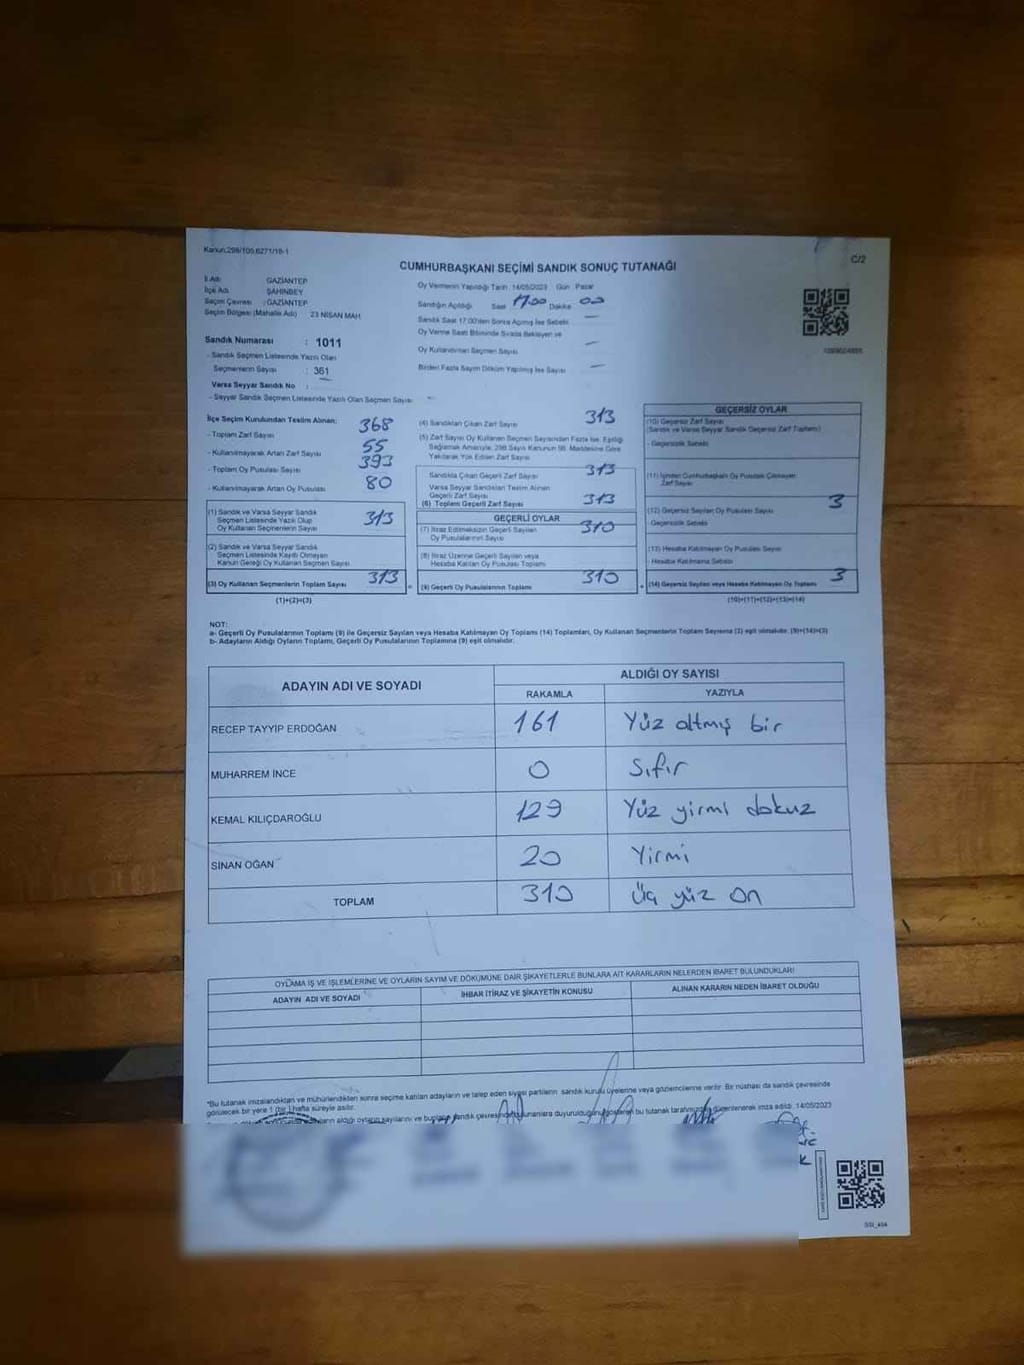 Kanun:298/105,6271/18-1
C/2
CUMHURBAŞKANI SEÇİMİ SANDIK SONUÇ TUTANAĞI
İl Adı GAZİANTEP
İlçe Adı ŞAHİNBEY
Seçim Çevresi : GAZİANTEP
Seçim Bölgesi (Mahalle Adı) 23 NİSAN MAH.
Sandık Numarası : 1011
- Sandık Seçmen Listesinde Yazılı Olan
Seçmenlerin Sayısı : 361
Varsa Seyyar Sandık No :
- Seyyar Sandık Seçmen Listesinde Yazılı Olan Seçmen Sayısı
Oy Vermenin Yapıldığı Tarih :14/05/2023 Gün : Pazar
Sandığın Açıldığı Saat 17.00 Dakika 00
Sandık Saat 17:00'den Sonra Açılmış İse Sebebi
Oy Verme Saati Bitiminde Sırada Bekleyen ve
Oy Kullandırılan Seçmen Sayısı
Birden Fazla Sayım Döküm Yapılmış İse Sayısı
İlçe Seçim Kurulundan Teslim Alınan;
- Toplam Zarf Sayısı 368
- Kullanılmayarak Artan Zarf Sayısı 55
- Toplam Oy Pusulası Sayısı 393
- Kullanılmayarak Artan Oy Pusulası 80
(1) Sandık ve Varsa Seyyar Sandık
Seçmen Listesinde Yazılı Olup
Oy Kullanan Seçmenlerin Sayısı 313
(2) Sandık ve Varsa Seyyar Sandık
Seçmen Listesinde Kayıtlı Olmayan
Kanun Gereği Oy Kullanan Seçmen Sayısı
(3) Oy Kullanan Seçmenlerin Toplam Sayısı 313
(1)+(2)=(3)
(4) Sandıktan Çıkan Zarf Sayısı 313
(5) Zarf Sayısı Oy Kullanan Seçmen Sayısından Fazla İse, Eşitliği
Sağlamak Amacıyla, 298 Sayılı Kanunun 98. Maddesine Göre
Yakılarak Yok Edilen Zarf Sayısı
Sandıkta Çıkan Geçerli Zarf Sayısı 313
Varsa Seyyar Sandıktan Teslim Alınan
Geçerli Zarf Sayısı
(6) Toplam Geçerli Zarf Sayısı 313
GEÇERLİ OYLAR
(7) İtiraz Edilmeksizin Geçerli Sayılan
Oy Pusulalarının Sayısı 310
(8) İtiraz Üzerine Geçerli Sayılan veya
Hesaba Katılan Oy Pusulası Toplamı
(9) Geçerli Oy Pusulalarının Toplamı 310
GEÇERSİZ OYLAR
(10) Geçersiz Zarf Sayısı
(Sandık ve Varsa Seyyar Sandık Geçersiz Zarf Toplamı)
- Geçersizlik Sebebi
(11) İçinden Cumhurbaşkanı Oy Pusulası Çıkmayan
Zarf Sayısı
(12) Geçersiz Sayılan Oy Pusulası Sayısı 3
- Geçersizlik Sebebi
(13) Hesaba Katılmayan Oy Pusulası Sayısı
- Hesaba Katılmama Sebebi
(14) Geçersiz Sayılan veya Hesaba Katılmayan Oy Toplamı 3
(10)+(11)+(12)+(13)=(14)
NOT:
a- Geçerli Oy Pusulalarının Toplamı (9) ile Geçersiz Sayılan veya Hesaba Katılmayan Oy Toplamı (14) Toplamları, Oy Kullanan Seçmenlerin Toplam Sayısına (3) eşit olmalıdır. (9)+(14)=(3)
b- Adayların Aldığı Oyların Toplamı, Geçerli Oy Pusulalarının Toplamına (9) eşit olmalıdır.
ADAYIN ADI VE SOYADI ALDIĞI OY SAYISI
RAKAMLA YAZIYLA
RECEP TAYYİP ERDOĞAN 161 Yüz altmış bir
MUHARREM İNCE 0 Sıfır
KEMAL KILIÇDAROĞLU 129 Yüz yirmi dokuz
SİNAN OĞAN 20 Yirmi
TOPLAM 310 Üç yüz on
OYLAMA İŞ VE İŞLEMLERİNE VE OYLARIN SAYIM VE DÖKÜMÜNE DAİR ŞİKAYETLERLE BUNLARA AİT KARARLARIN NELERDEN İBARET BULUNDUKLARI
ADAYIN ADI VE SOYADI İHBAR İTİRAZ VE ŞİKAYETİN KONUSU ALINAN KARARIN NEDEN İBARET OLDUĞU
*Bu tutanak imzalandıktan ve mühürlendikten sonra seçime katılan adayların ve talep eden siyasi partilerin sandık kurulu üyelerine veya gözlemcilerine verilir. Bir nüshası da sandık çevresinde
görülecek bir yere 1 (bir) hafta süreyle asılır.
aldığı oyların sayılarını ve sandık çevresinde bu tutanak tarafımızdan düzenlenerek imza edildi. 14/05/2023